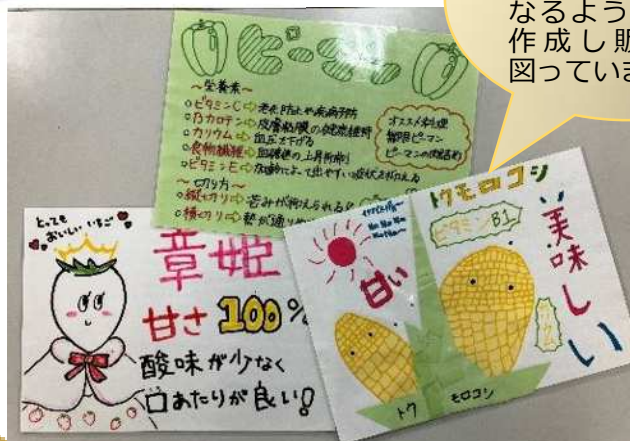 なるよう
作成し販
図っていま
ピーマン
～栄養素～
○ビタミンC⇨老化防止や疾病予防
○βカロテン⇨皮膚粘膜の健康維持
○カリウム⇨血圧を下げる
○食物繊維⇨血糖値の上昇抑制
○ビタミンE⇨加齢によって出やすい症状を抑える
～切り方～
○縦切り⇨苦みが抑えられる
○横切り⇨熱が通りや
オススメ料理
無限ピーマン
ピーマンの肉詰め
とっても
おいしい いちご
章姫
甘さ100%
酸味が少なく
口あたりが良い!
トウモロコシ
ビタミンB1
甘い
美味しい
トウ
モロコシ